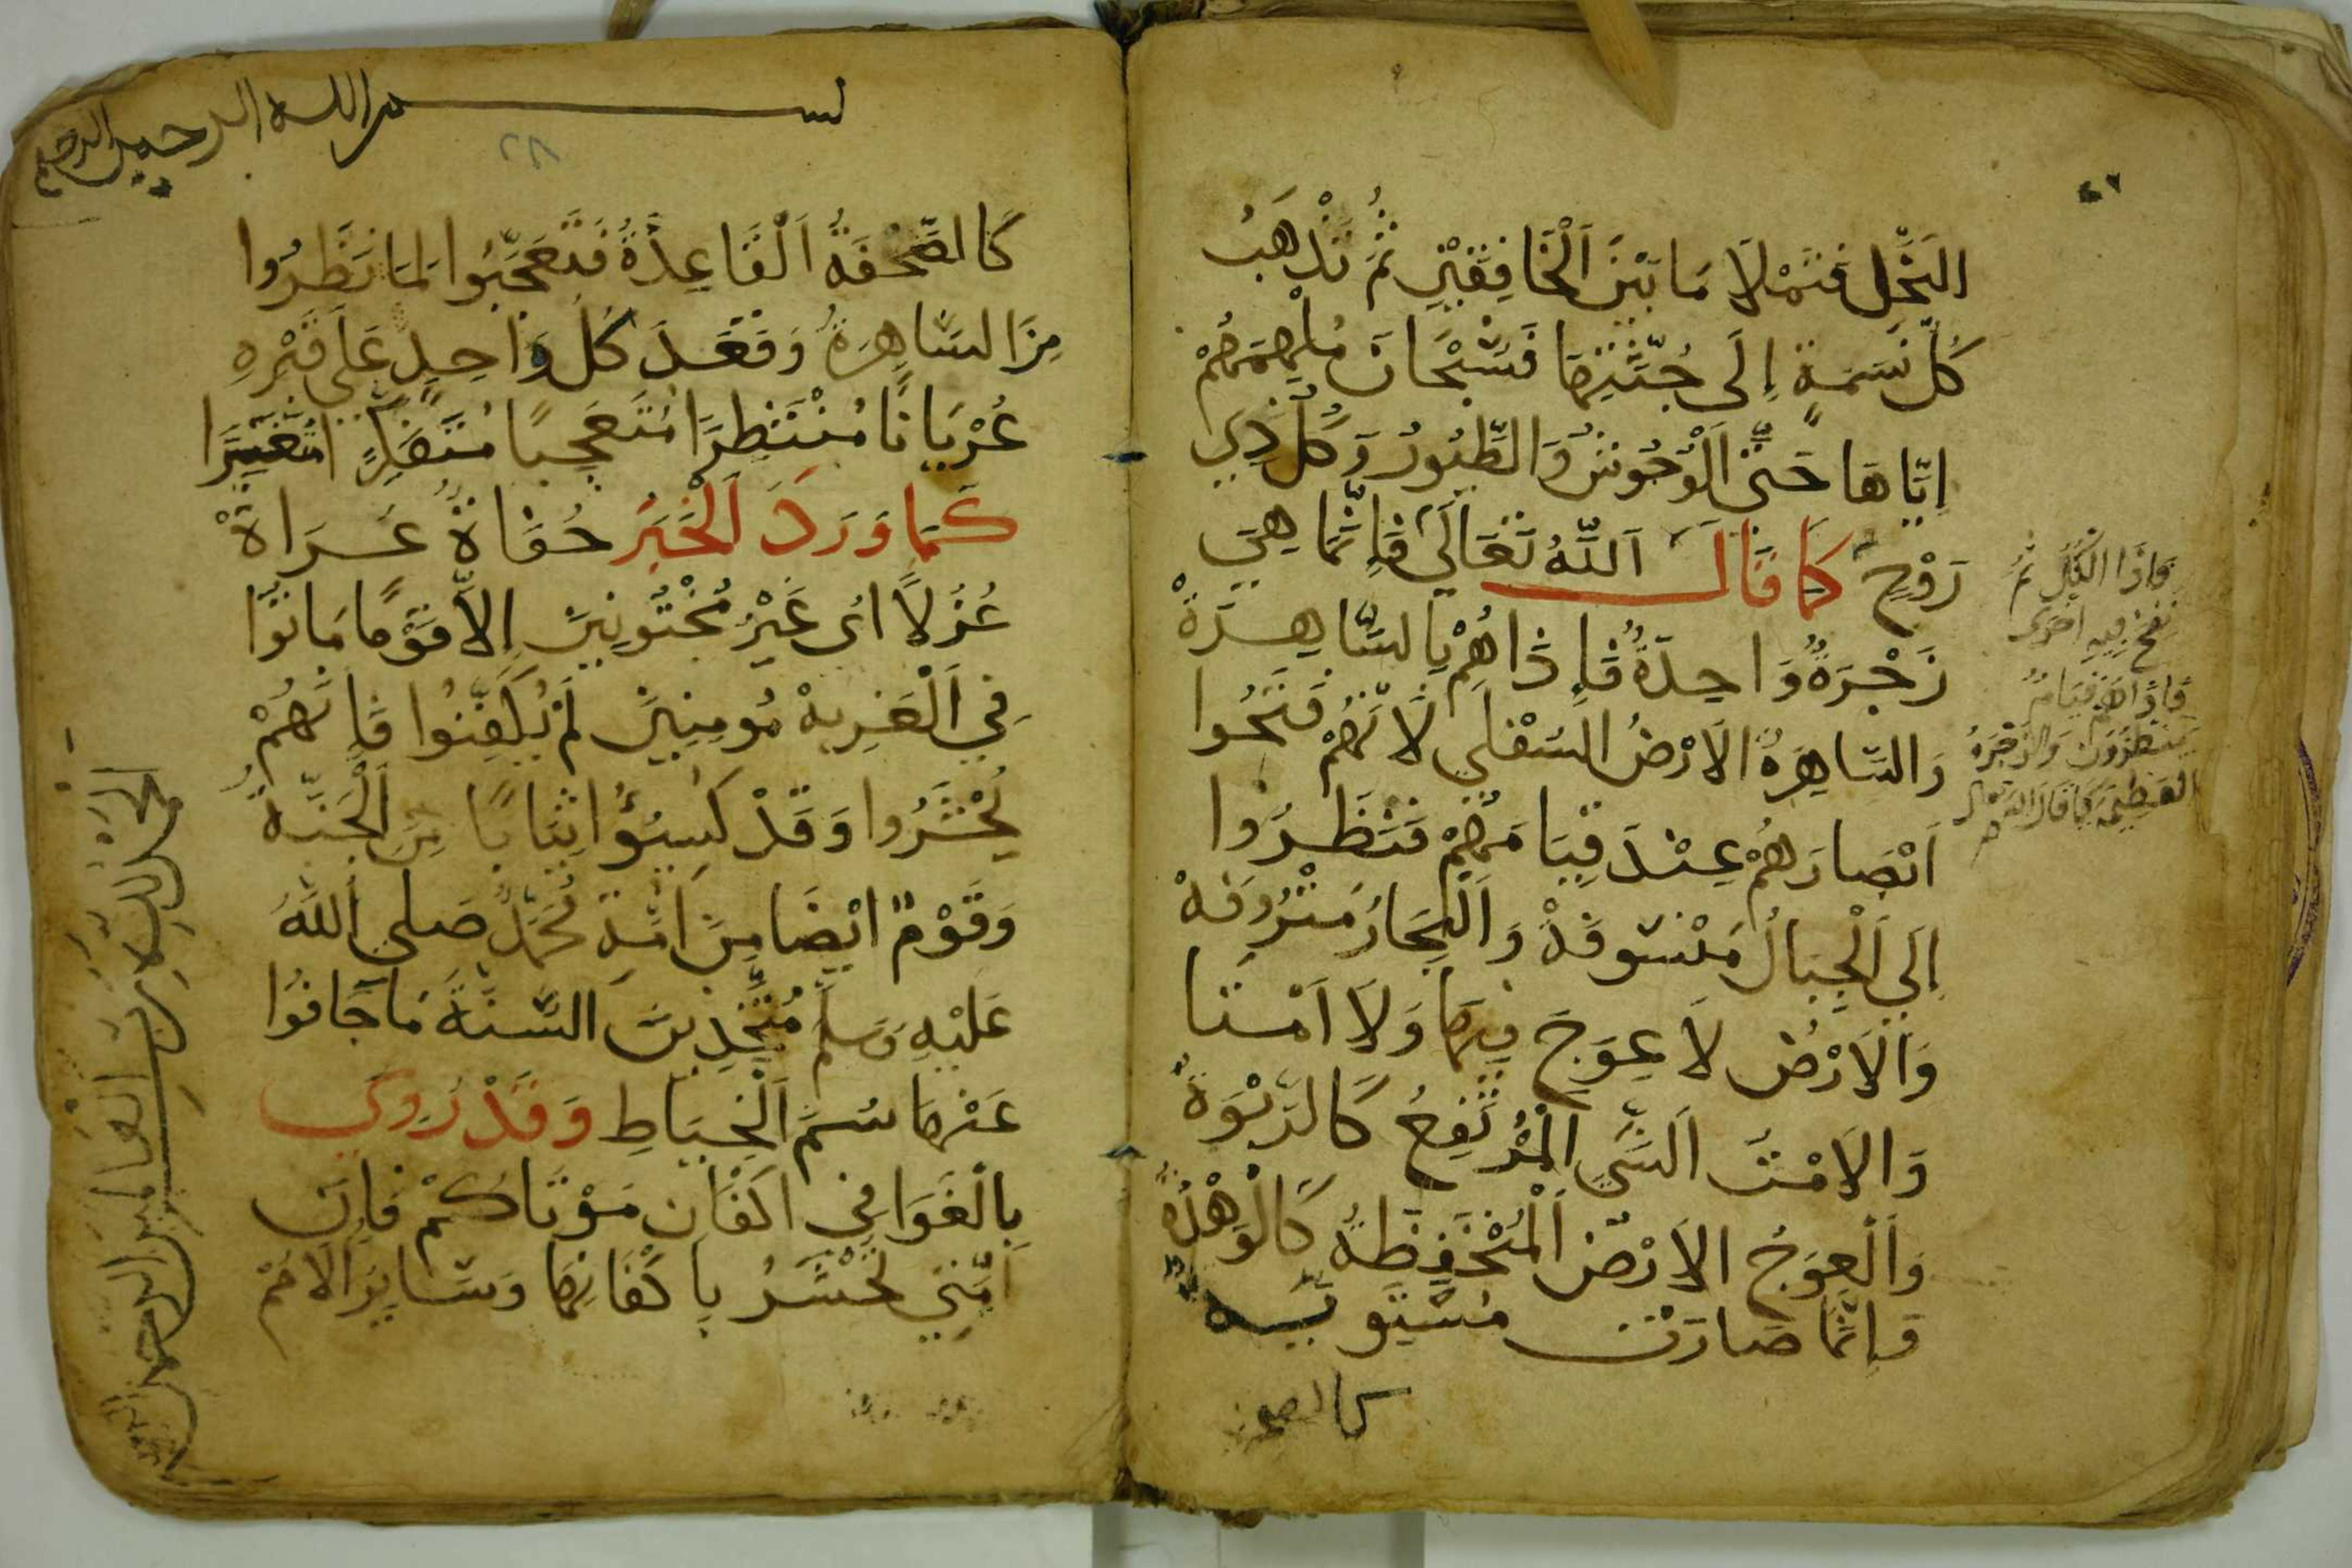 ٤٧
النَّحْلِ فَتَمْلَا مَا بَيْنَ اَلْخَافِقَيْنِ ثُمَّ تَذْهَبُ
كُلُّ نَسَمَةٍ إِلَى جُثَّتِهَا فَسُبْحَانَ مُلْهِمُهُمْ
اِيَّاهَا حَتَّى اَلْوُحُوشُ وَالطُّيُورُ وَكُلُّ ذِي
رَوْحٍ كَمَا قَالَ اَللَّهُ تَعَالَى فَإِنَّمَا هِيَ
زَجْرَةٌ وَاحِدَةٌ فَإِذَاهُمْ بِالسَّاهِرَةْ
وَالسَّاهِرَةُ الاَرْضُ السُفْلَي لَانَّهُمْ فَتَحُوا
اَبْصَارَهُمْ عِنْدَ قِيَامَهُمْ فَنَظَرُوا
إِلَي اَلْجِبَالُ مَنْسوفَةْ وَ اَلْبِحَارُ مَنْزُوفَةْ
وَالاَرْضُ لاَ عِوَجَ فِيهَا وَلاَ اَمْتَا
وَالاَمْتُ اَلشَّيِ الْمُرْتَفِعُ كَالرَّبْوَةْ
وَاَلْعِوَجُ الاَرْضُ اَلْمُنْخَفِظَةُ كَالْوَهْدَةُ
وَإِنَّمَا صَارَتْ مُسْتَوِيَةً
كالصحفة
فَاذَا الْكُلُّ ثُمَّ
نفخ فيه اخرى
فَاذَا هُمْ قِيَامٌ
يَنْظُرُونَ وَالزَّجْرَةُ
العَظِيمَة كَمَا قَالَ الله تعالى
بسم الله الرحمن الرحيم
٢٨
كَالصَّحْفَةُ اَلْقَاعِدَةُ فَتَعَجَّبُوا لِمَا نَظَرُوا
مِنَ السَّاهِرَةُ وَقَعَدَ كُل وَاحِدٍ عَلَى قَبْرِهِ
عُرْيَانًا مُنْتَظِرًا مُتَعَجِبًا مُتَفَكِّرًا مُتَغَيِّرًا
كَمَا وَرَدَ اَلْخَبَرُ حُفَاةً عُرَاةْ
غُرْلاً اَىْ غَيْرُ مَخْتُونِينَ إِلاَّ قَوْمًا مَاتُوا
فِي اَلْغَرِبَةْ مُومِنِينَ لَمْ يُكَفَّنُوا فَإِنَّهُمْ
يُحْشَرُوا وَقَدْ كُسِيُوُا ثِيَابًا مِنَ اَلْجَنَّةْ
وَقَوْمٌ اَيْضَا مِنْ اُمَّةِ مُحَمَّدٌ صَلى اَللَّهُ
عَلَيْهِ وَسَلم مُتَّخِذِينَ السُّنَّةَ مَا جَافُوا
عَنْهَا سُمَّ اَلْخِيَاطِ وَقَدْ رُوِيَ
بِالْغَوَا فِي اَكْفَانِ مَوْتَاكُمْ فَاِنَّ
اُمَّتِي تُحْشَرُ بِاَكْفَانِهَا وَسَايِرَ الاُمَمْ
الحمد لله رب العالمين الرحمن